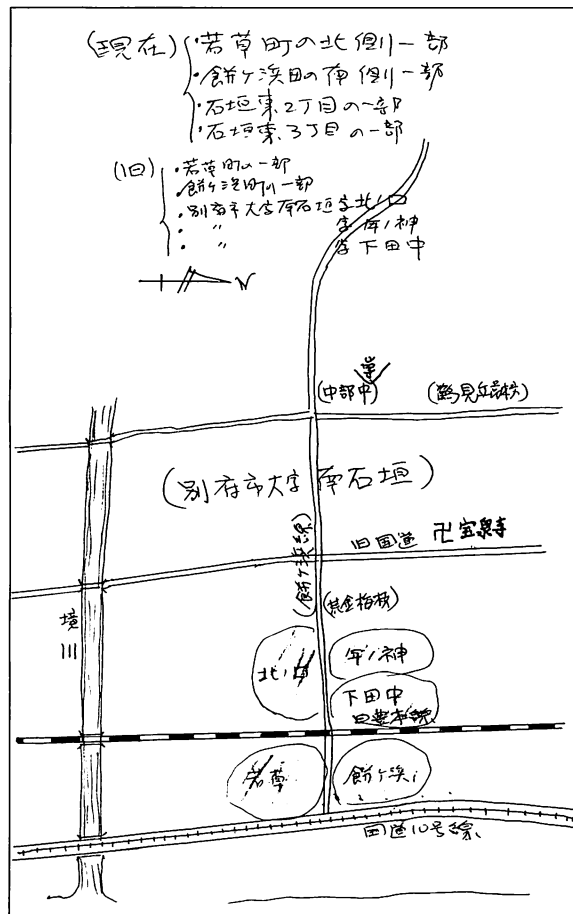 (現在)
・若草町の北側一部
・餅ヶ浜町の南側一部
・石垣東2丁目の一部
・石垣東3丁目の一部
(旧)
・若草町の一部
・餅ヶ浜町の一部
・別府市大字南石垣字北ノ口
・ 〃 字年ノ神
・ 〃 字下田中
N
(中部中)
(鶴見丘高校)
(別府市大字南石垣)
旧国道
卍宝泉寺
(餅ヶ浜線)
境川
北ノ口
年ノ神
下田中
日豊本線
若草
餅ヶ浜
国道10号線